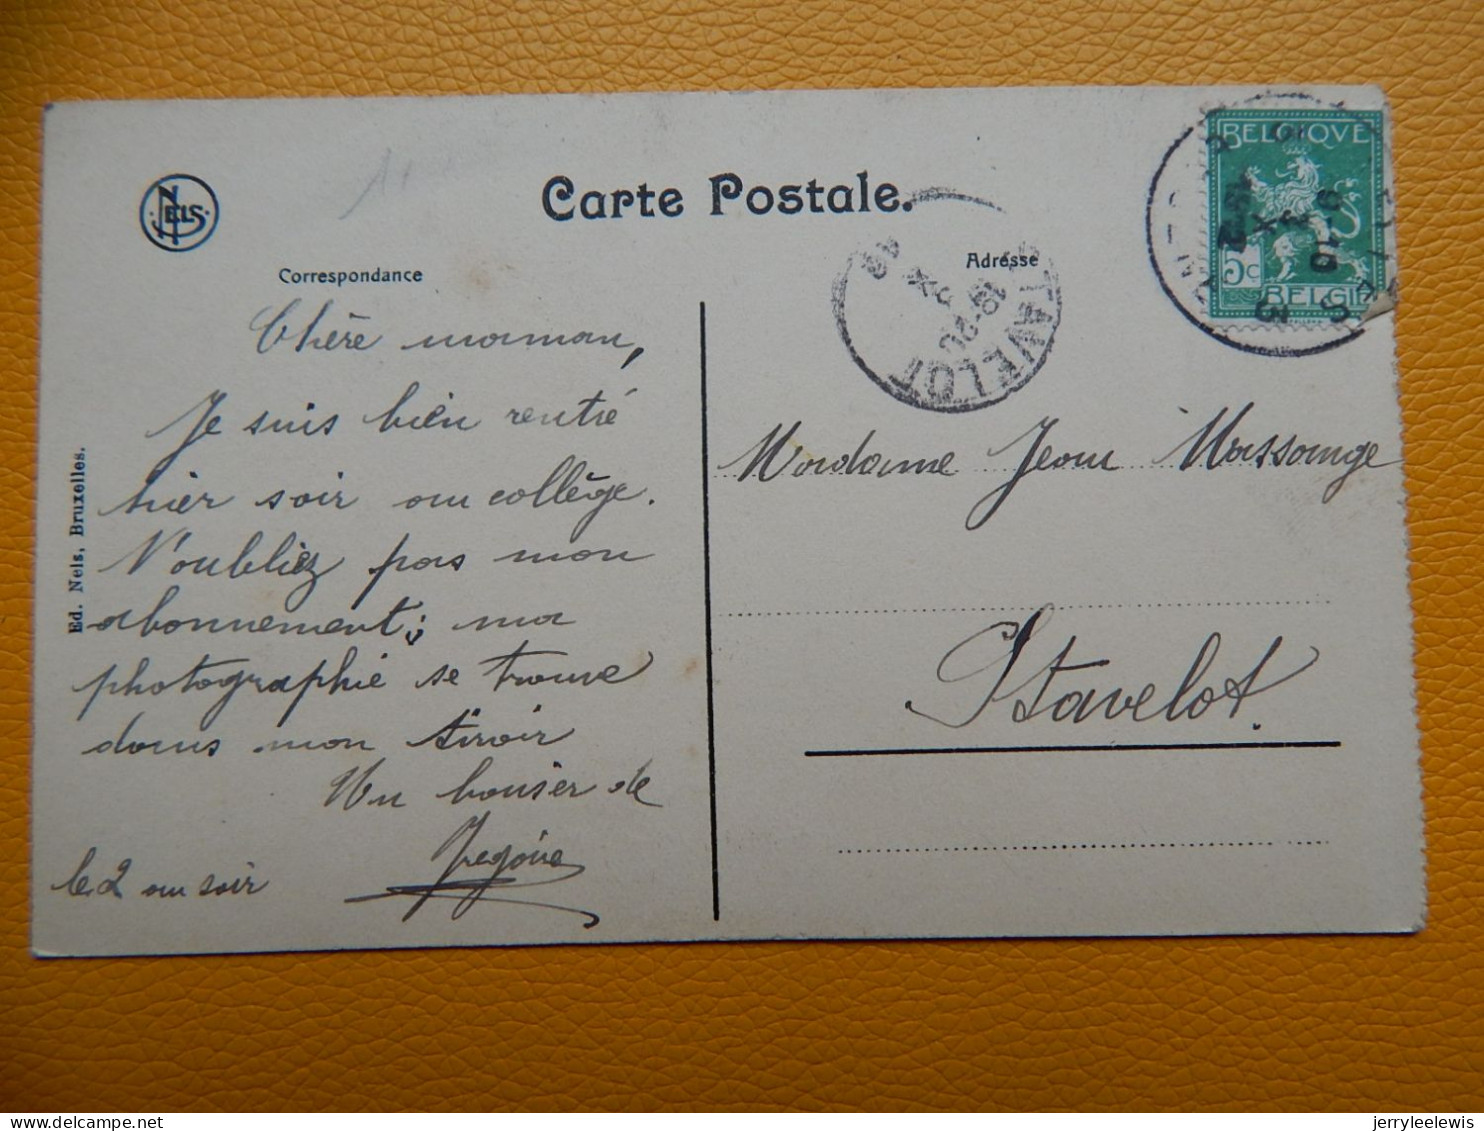 NELS
Carte Postale.
Correspondance
Adresse
BELGIQUE
5c
BELGIË
9-10
STAVELOT
18-20
Chère maman,
Je suis bien rentré
hier soir au collège.
N'oubliez pas mon
abonnement; ma
photographie se trouve
dans mon tiroir
Un baiser de
Gregoire
le 2 au soir
Madame Jean Massange
Stavelot.
Ed. Nels, Bruxelles.
jerryleelewis